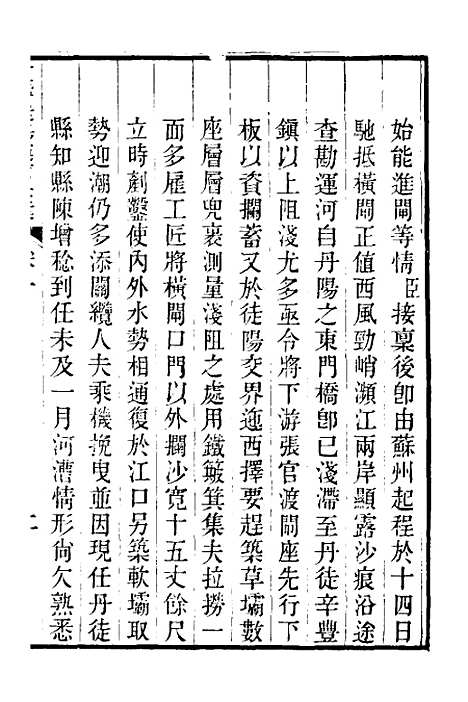 始能進閘等情臣接稟後卽由蘇州起程於十四日
馳抵橫閘正值西風勁峭瀕江兩岸顯露沙痕沿途
查勘運河自丹陽之東門橋卽已淺滯至丹徒辛豐
鎮以上阻淺尤多亟令將下游張官渡閘座先行下
板以資攔蓄又於徒陽交界迤西擇要趕築草壩數
座層層兜裹測量淺阻之處用鐵簸箕集夫拉撈一
面多雇工匠將橫閘口門以外攔沙寬十五丈餘尺
立時剷鑿使內外水勢相通復於江口另築軟壩取
勢迎潮仍多添關纜人夫乘機挽曳並因現任丹徒
縣知縣陳增稔到任未及一月河漕情形尙欠熟悉